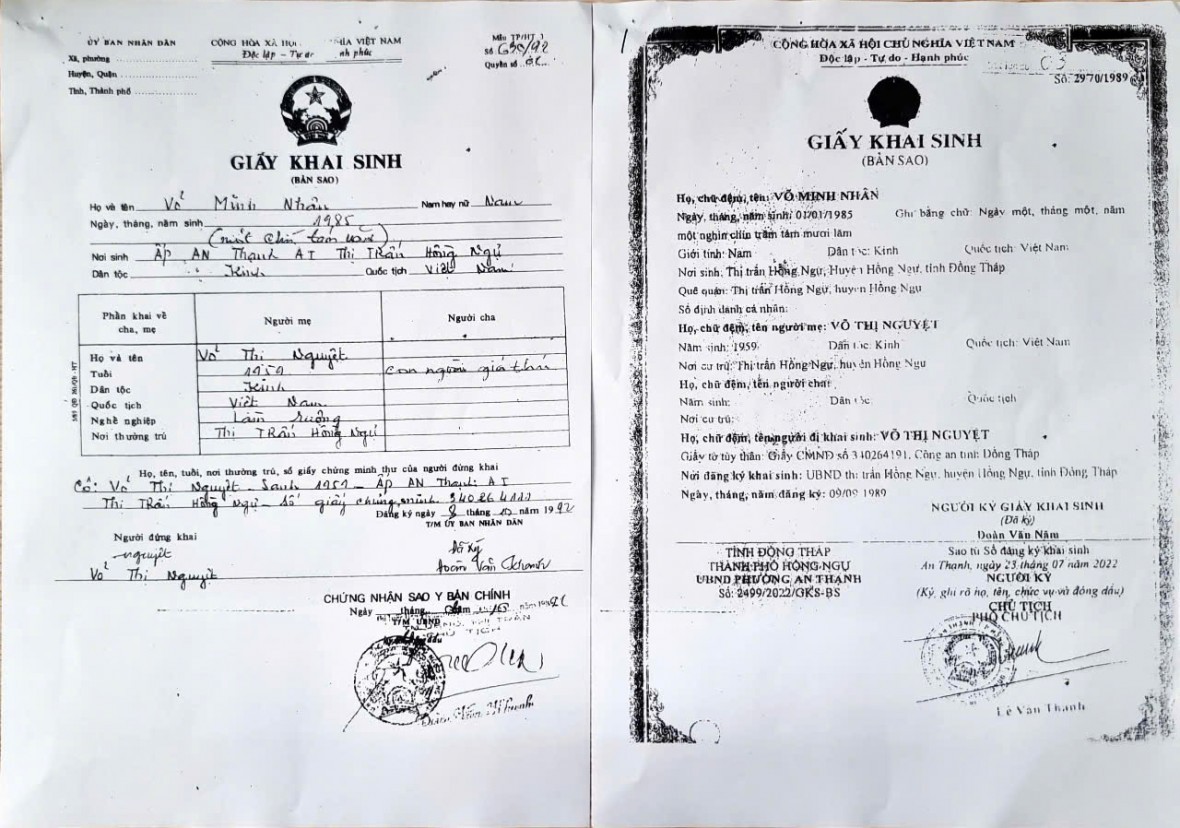 ỦY BAN NHÂN DÂN
Xã, phường
Huyện, Quận
Tỉnh, Thành phố
CỘNG HÒA XÃ HỘI NGHĨA VIỆT NAM
Độc lập - Tự do nh phúc
Mẫu TP/HT 1
Số 630/92
Quyển số
GIẤY KHAI SINH
(BẢN SAO)
Họ và tên Võ Minh Nhân Nam hay nữ Nam
Ngày, tháng, năm sinh 1985
Nơi sinh Ấp AN Thạnh A I Thị TRấn Hồng Ngự
Dân tộc Kinh Quốc tịch Việt Nam
Phần khai về cha, mẹ
Người mẹ
Người cha
Họ và tên Võ Thị Nguyệt
Tuổi 1959
Dân tộc Kinh
Quốc tịch Việt Nam
Nghề nghiệp Làm ruộng
Nơi thường trú Thị TRấn Hồng Ngự
Họ, tên, tuổi, nơi thường trú, số giấy chứng minh thư của người đứng khai
Cô: Võ Thị Nguyệt - Sanh 1959 - Ấp AN Thạnh A I
Thị TRấn Hồng Ngự - Số giấy chứng minh
Đăng ký ngày 8 tháng năm 1992
T/M ỦY BAN NHÂN DÂN
Người đứng khai
nguyệt
Võ Thị Nguyệt
Đã ký
Đoàn Văn
CHỨNG NHẬN SAO Y BẢN CHÍNH
Ngày tháng năm
T/M UBND
CỘNG HÒA XÃ HỘI CHỦ NGHĨA VIỆT NAM
Độc lập - Tự do - Hạnh phúc
03
Số: 2970/1989
GIẤY KHAI SINH
(BẢN SAO)
Họ, chữ đệm, tên: VÕ MINH NHÂN
Ngày, tháng, năm sinh: 01/01/1985 Ghi bằng chữ: Ngày một, tháng một, năm
một nghìn chín trăm tám mươi lăm
Giới tính: Nam Dân tộc: Kinh Quốc tịch: Việt Nam
Nơi sinh: Thị trấn Hồng Ngự, Huyện Hồng Ngự, tỉnh Đồng Tháp
Quê quán: Thị trấn Hồng Ngự, huyện Hồng Ngự
Số định danh cá nhân:
Họ, chữ đệm, tên người mẹ: VÕ THỊ NGUYỆT
Năm sinh: 1959 Dân tộc: Kinh Quốc tịch: Việt Nam
Nơi cư trú: Thị trấn Hồng Ngự, huyện Hồng Ngự
Họ, chữ đệm, tên người cha:
Năm sinh: Dân tộc: Quốc tịch:
Nơi cư trú:
Họ, chữ đệm, tên người đi khai sinh: VÕ THỊ NGUYỆT
Giấy tờ tùy thân: Giấy CMND số 340264191, Công an tỉnh Đồng Tháp
Nơi đăng ký khai sinh: UBND thị trấn Hồng Ngự, huyện Hồng Ngự, tỉnh Đồng Tháp
Ngày, tháng, năm đăng ký: 09/09/1989
NGƯỜI KÝ GIẤY KHAI SINH
(Đã ký)
Đoàn Văn Năm
TỈNH ĐỒNG THÁP
THÀNH PHỐ HỒNG NGỰ
UBND PHƯỜNG AN THẠNH
Số: 2499/2022/GKS-BS
Sao từ Sổ đăng ký khai sinh
An Thạnh, ngày 23 tháng 07 năm 2022
NGƯỜI KÝ
(Ký, ghi rõ họ, tên, chức vụ và đóng dấu)
CHỦ TỊCH
PHÓ CHỦ TỊCH
Lê Văn Thanh